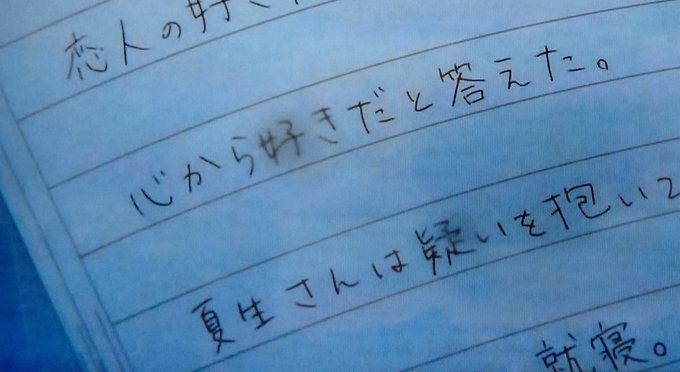 恋人の好き
心から好きだと答えた。
夏生さんは疑いを抱いて
就寝。